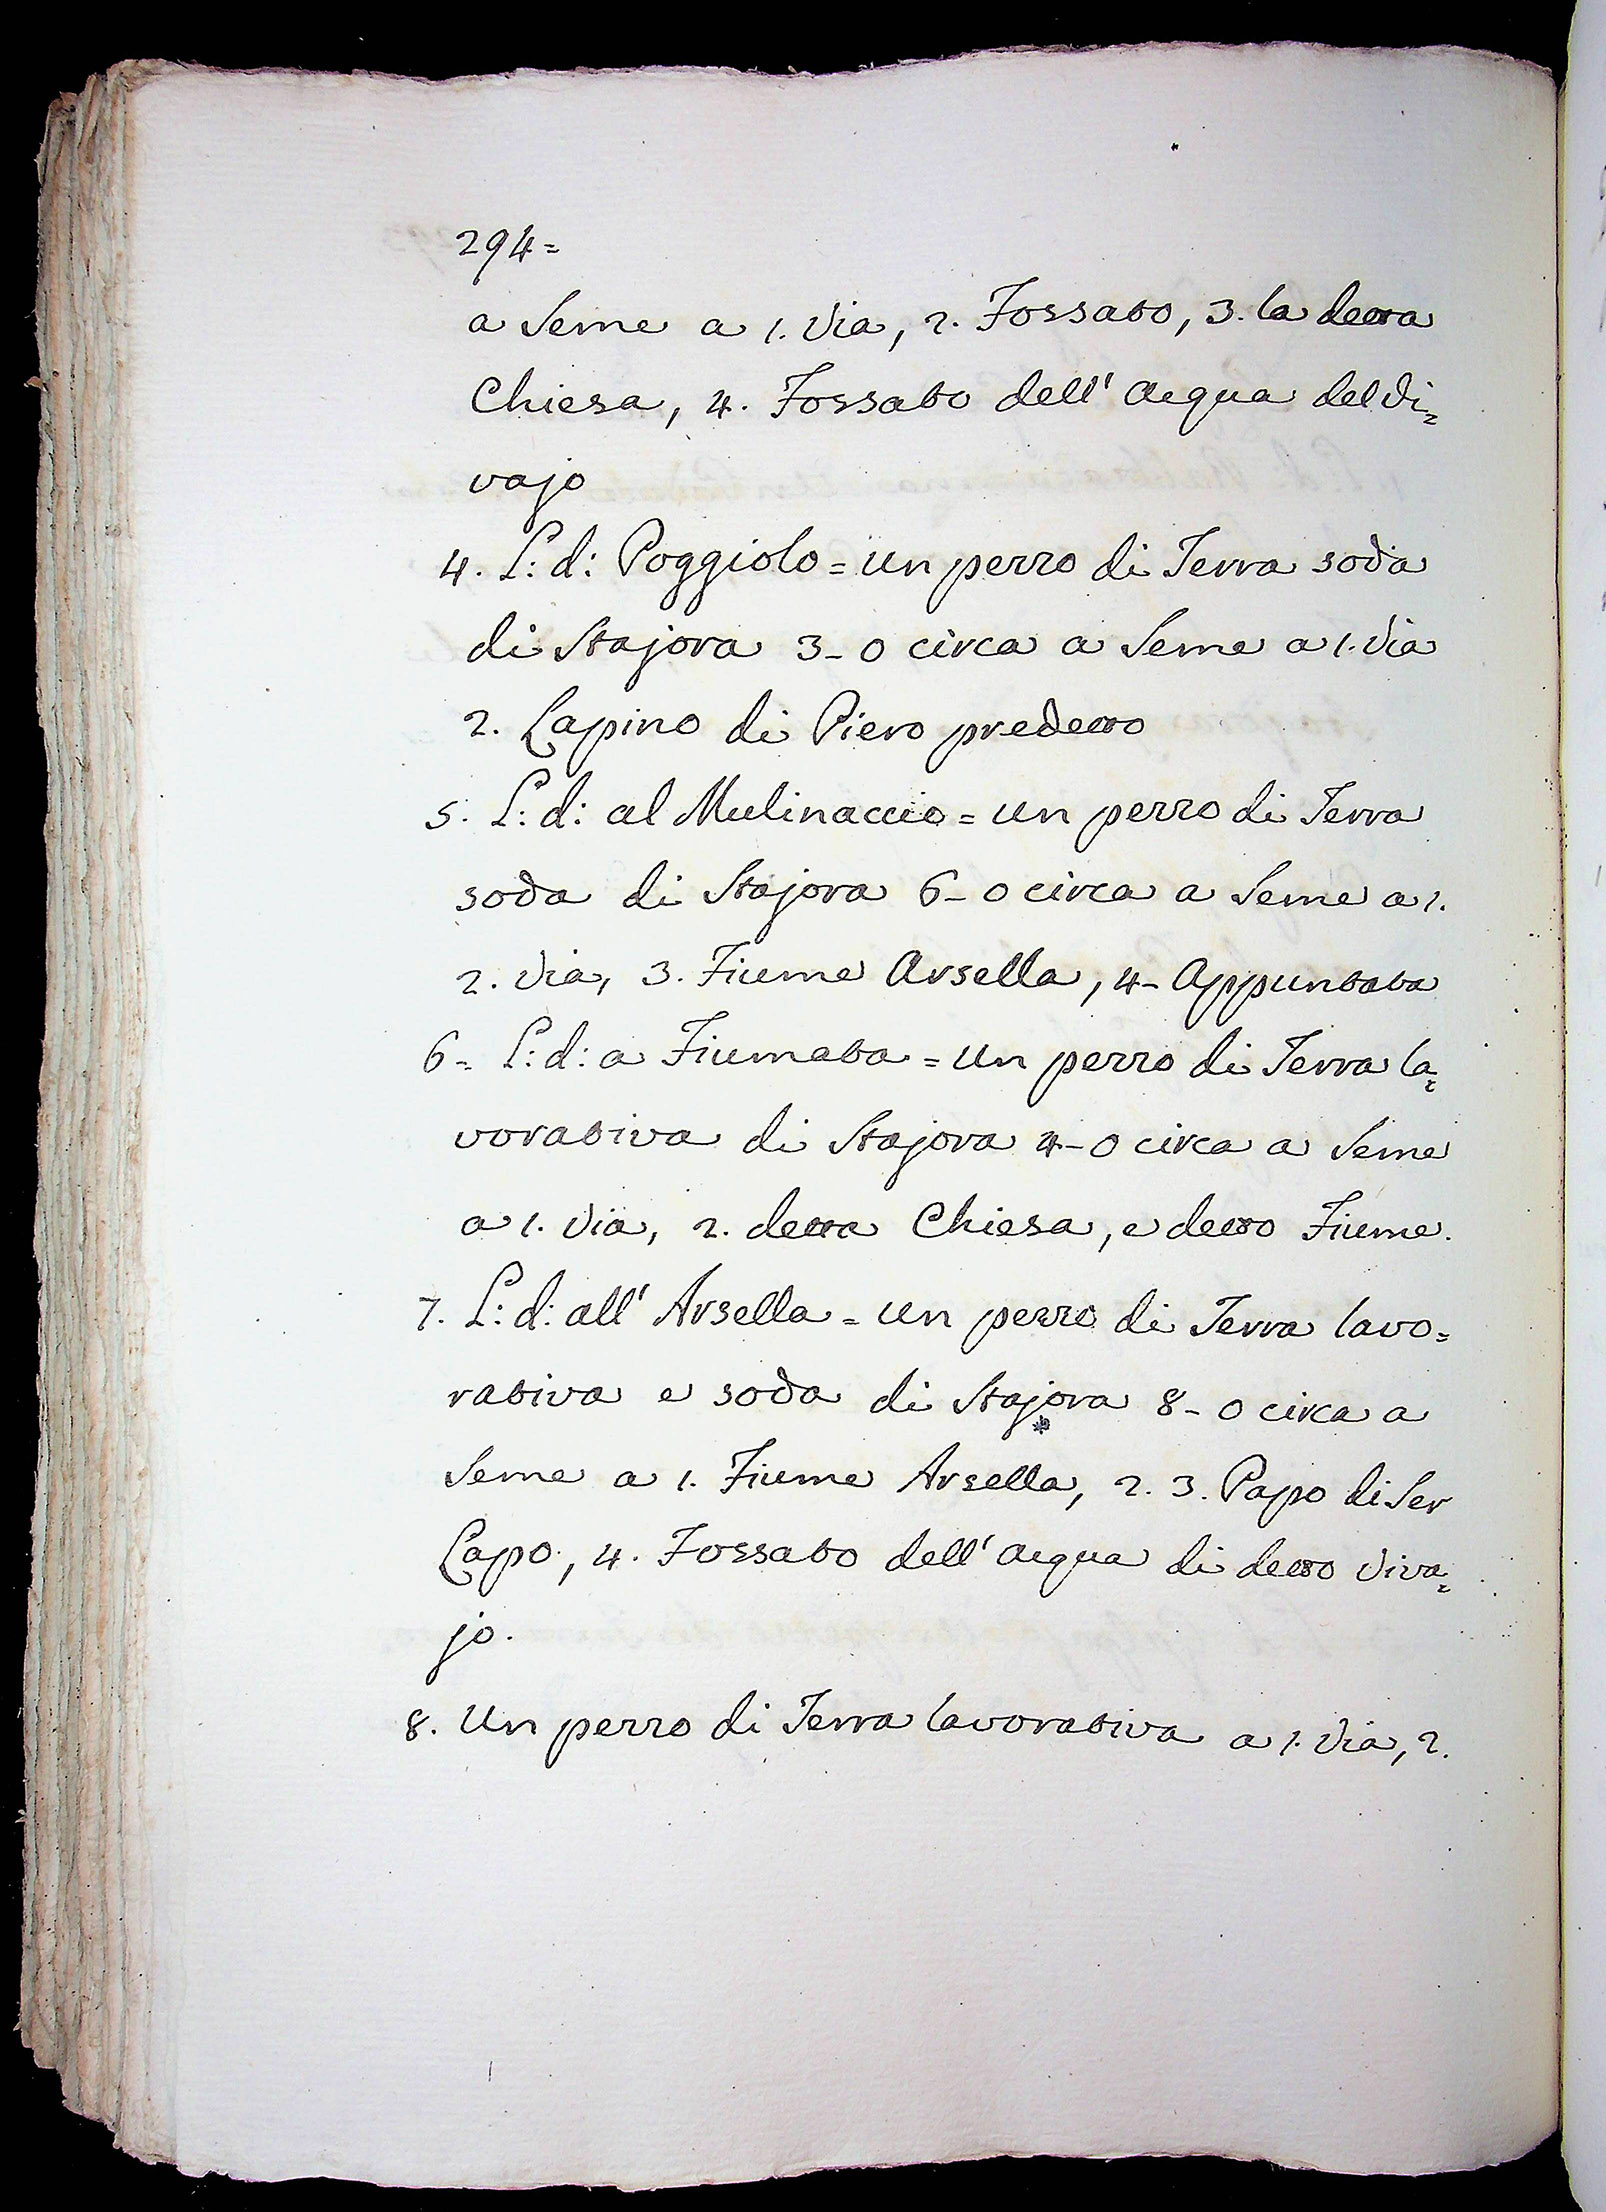 294=
a Seme a 1. Via, 2. Fossato, 3. la detta
Chiesa, 4. Fossato dell' Acqua del Vi=
vajo
4. L: d: Poggiolo = Un pezzo di Terra soda
di Stajora 3-0 circa a Seme a 1. Via
2. Lapino di Piero predetto
5. L: d: al Mulinaccio = Un pezzo di Terra
soda di Stajora 6-0 circa a Seme a 1.
2. Via, 3. Fiume Arsella, 4- Appuntata
6= L: d: a Fiumata = Un pezzo di Terra la=
vorativa di Stajora 4-0 circa a Seme
a 1. Via, 2. detta Chiesa, e detto Fiume.
7. L: d: all' Arsella = Un pezzo di Terra lavo=
rativa e soda di Stajora 8-0 circa a
Seme a 1. Fiume Arsella, 2. 3. Papo di Ser
Lapo, 4. Fossato dell' Acqua di detto Viva=
jo.
8. Un pezzo di Terra lavorativa a 1. Via, 2.